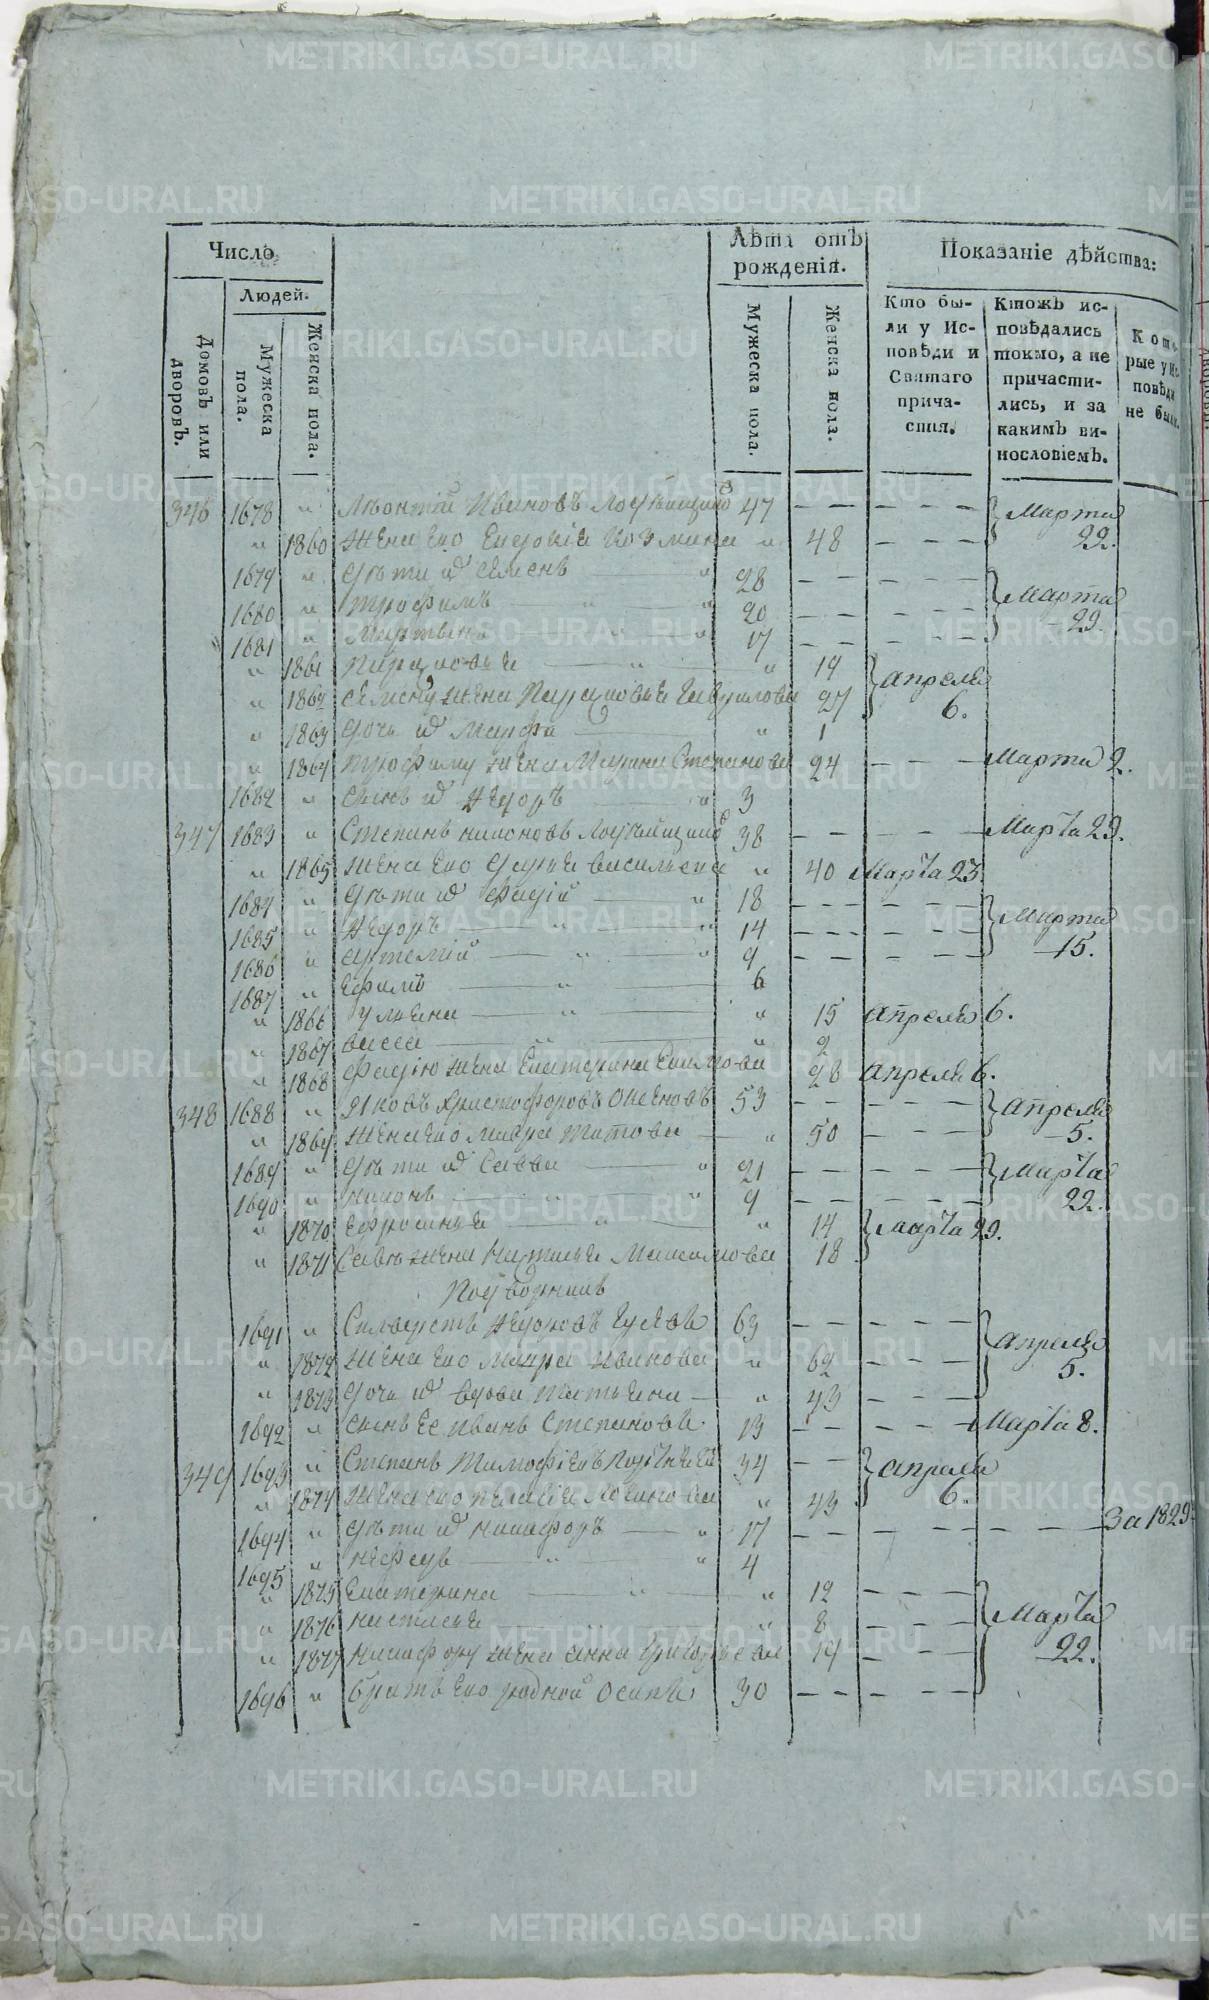 Число
Лѣта отъ рожденія.
Показаніе дѣйства:
Людей.
Домовъ или дворовъ.
Мужеска пола.
Женска пола.
Мужеска пола.
Женска пола.
Кто были у Исповѣди и Святаго причастія.
Ктожъ исповѣдались токмо, а не причастились, и за какимъ винословіемъ.
Которые у Исповѣди не были.
346 1678 " Леонтій Ивановъ 47 Марта
" 1860 Жена его Евдокія Козмина " 48 22.
1679 " Дѣти их Семенъ " 28 Марта
1680 " Трофимъ " " 20 29.
1681 " " " 17
" 1861 Парасковья " " 19 Апреля
" 1862 Семену жена Парасковья Гаврилова 27 6.
" 1863 Дочь их Марфа " 1
" 1864 Трофиму жена Марина Степанова 24 Марта 2.
1682 " Сынъ их Ѳедоръ " 3
347 1683 " Степанъ 38 Марта 29.
" 1865 Жена его Дарья Васильева " 40 Марта 23.
1684 " Дѣти их Фадѣй " 18 Марта
1685 " Ѳедоръ " " 14 15.
1686 " Артемій " " 9
1687 " Ефимъ " 6
" 1866 Ульяна " " 15 Апреля 6.
" 1867 Васса " " 2
" 1868 Фадѣю жена Екатерина 28 Апреля 6.
348 1688 " Яковъ Христофоровъ 53 Апреля
" 1869 Жена его Мавра Титова " 50 5.
1689 " Дѣти их Савва " 21 Марта
1690 " " " 9 22.
" 1870 Ефросинья " " 14 Марта 29.
" 1871 Савѣ жена Наталья Максимова 18
Подворникъ
1691 " Селверстъ Ѳедоровъ 63 Апреля
" 1872 Жена его Мавра Иванова " 62 5.
" 1873 Дочь их вдова Татьяна " 43
1692 " Сынъ ее Иванъ Степановъ 13 Марта 8.
349 1693 " Степанъ Тимофѣевъ 34 Апреля
" 1874 Жена его Пелагія " 43 6.
1694 " Дѣти их Никифоръ " 17 За 1829
1695 " Нефедъ " " 4
" 1875 Екатерина " " 12 Марта
" 1876 Настасья " 8 22.
" 1877 Никифору жена Анна Григорьева 19
1696 " Братъ его родной Осипъ 30
METRIKI.GASO-URAL.RU